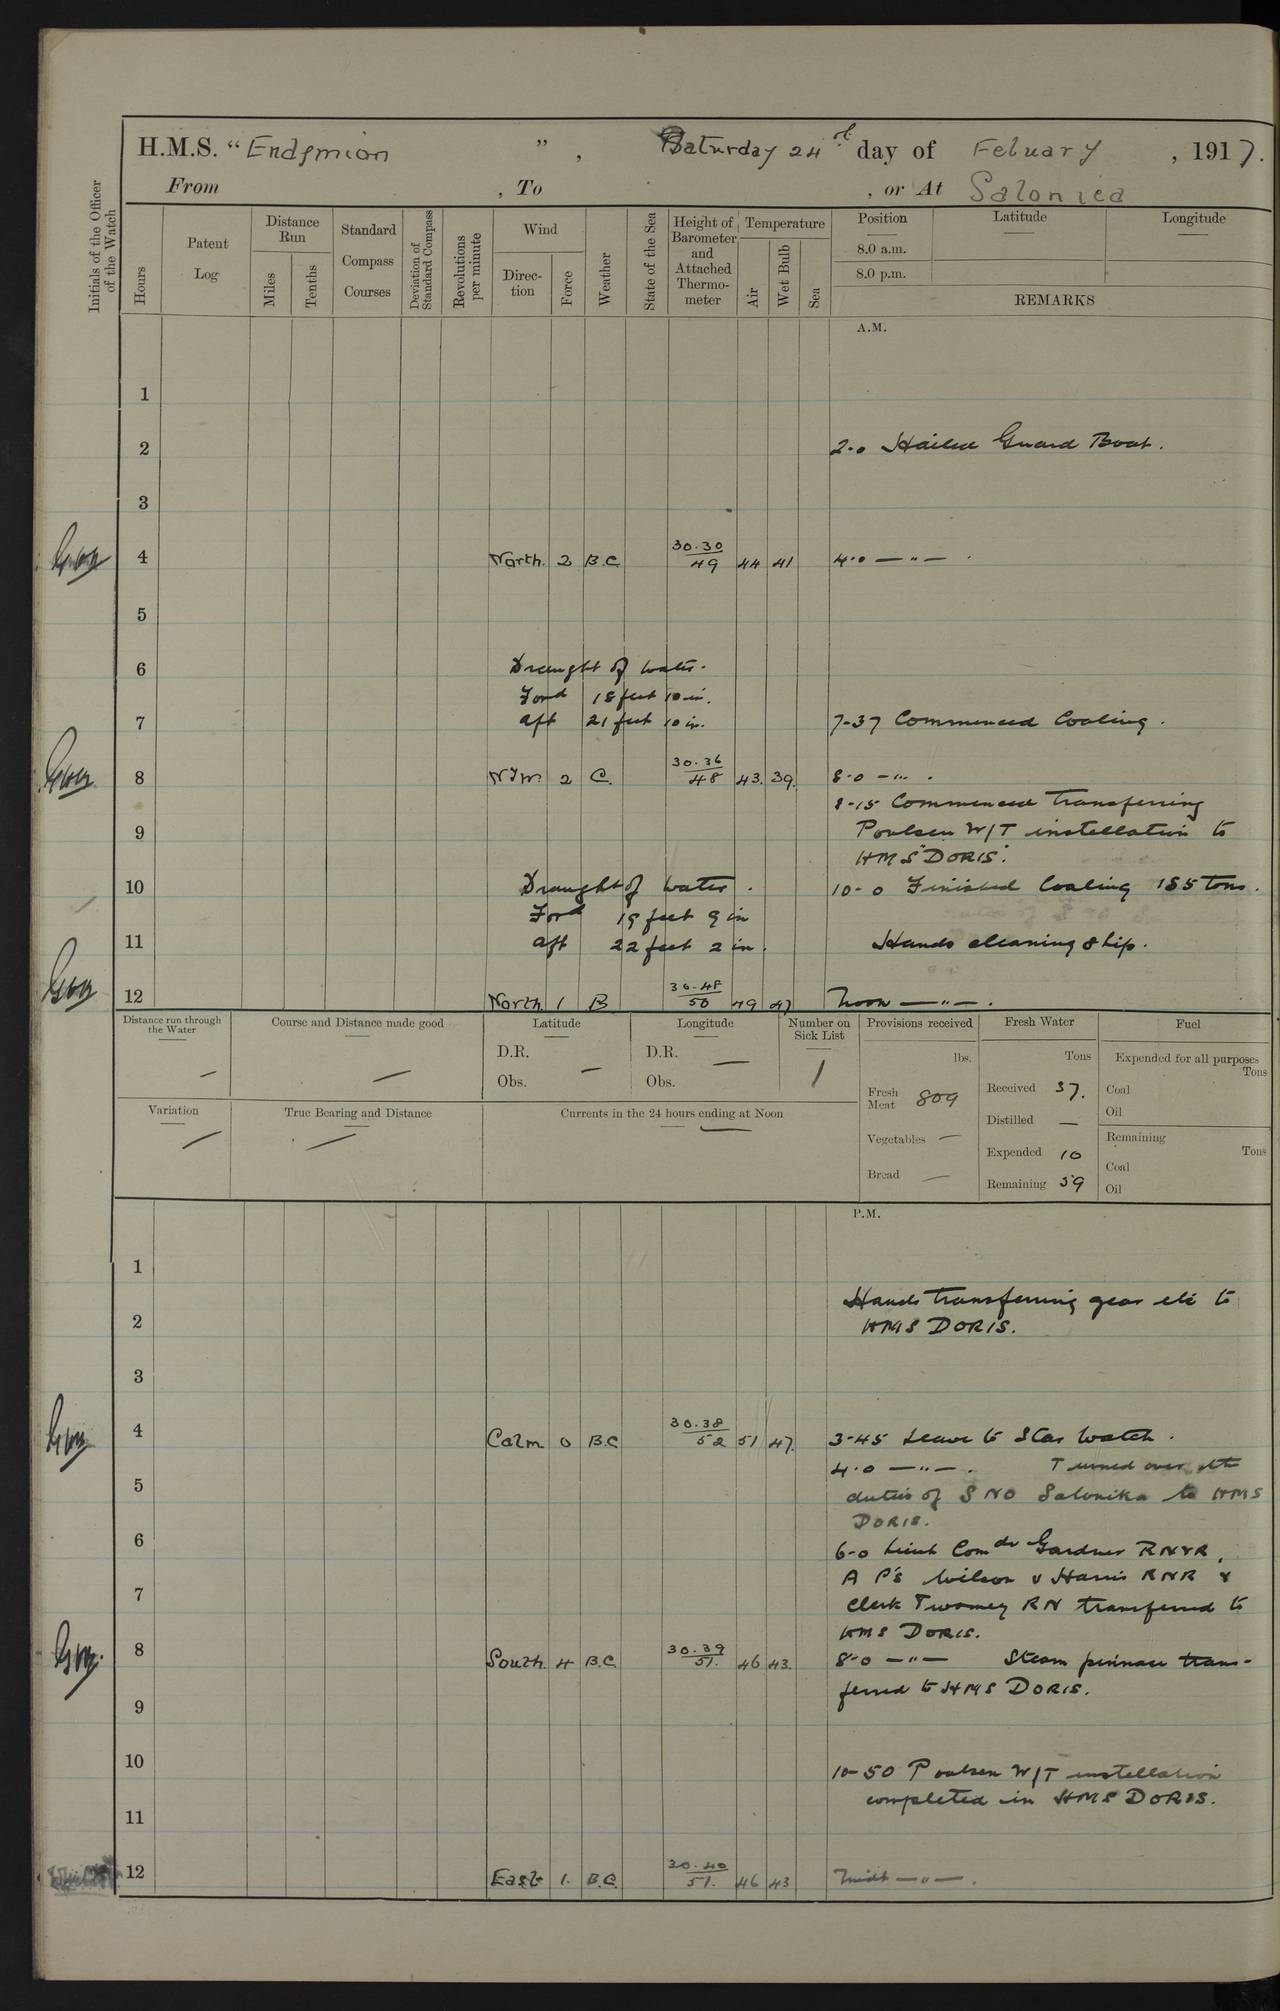 H.M.S. “Endymion ” , Saturday 24th day of Febuary , 1917.
From , To , or At Salonica
Initials of the Officer of the Watch
Hours
Patent Log
Distance Run
Miles
Tenths
Standard Compass Courses
Deviation of Standard Compass
Revolutions per minute
Wind
Direc-tion
Force
Weather
State of the Sea
Height of Barometer and Attached Thermo-meter
Temperature
Air
Wet Bulb
Sea
Position Latitude Longitude
8.0 a.m.
8.0 p.m.
REMARKS
A.M.
1
2 2-0 Hailed Guard Boat.
3
4 North. 2 B.C 30.30 49 44 41 4.0 — " — .
5
6 Draught of water.
Ford 18 feet 10 in.
7 aft 21 feet 10 in. 7-37 Commenced Coaling.
8 NW 2 C. 30.36 48 43. 39. 8.0 — " .
8-15 Commenced transferring
9 Poulsen W/T instellation to
HMS "DORIS".
10 Draught of water. 10-0 Finished Coaling 185 tons.
Ford 19 feet 9 in
11 aft 22 feet 2 in. Hands cleaning ship.
12 North 1 B 30.48 50 49 47 Noon — " — .
Distance run through the Water
Course and Distance made good
Latitude
D.R. —
Obs.
Longitude
D.R. —
Obs.
Number on Sick List
1
Provisions received
lbs.
Fresh Meat 809
Vegetables —
Bread —
Fresh Water
Tons
Received 37.
Distilled —
Expended 10
Remaining 59
Fuel
Expended for all purposes
Tons
Coal
Oil
Remaining
Tons
Coal
Oil
Variation
True Bearing and Distance
Currents in the 24 hours ending at Noon
P.M.
1
Hands transferring gear etc to
2 HMS DORIS.
3
4 Calm 0 B.C 30.38 52 51 47. 3-45 Leave to Star Watch.
4.0 — " — . Turned over the
5 duties of SNO Salonika to HMS
DORIS.
6 6-0 Lieut Comdr Gardner RNVR,
A P's Wilson & Harris RNR &
7 Clerk Twomey RN transferred to
HMS DORIS.
8 South. 4 B.C 30.39 51. 46 43. 8.0 — " — Steam pinnace trans-
ferred to HMS DORIS.
9
10 10-50 Poulsen W/T instellation
completed in HMS DORIS.
11
12 East 1. B.C. 30.40 51. 46 43 Midt — " — .